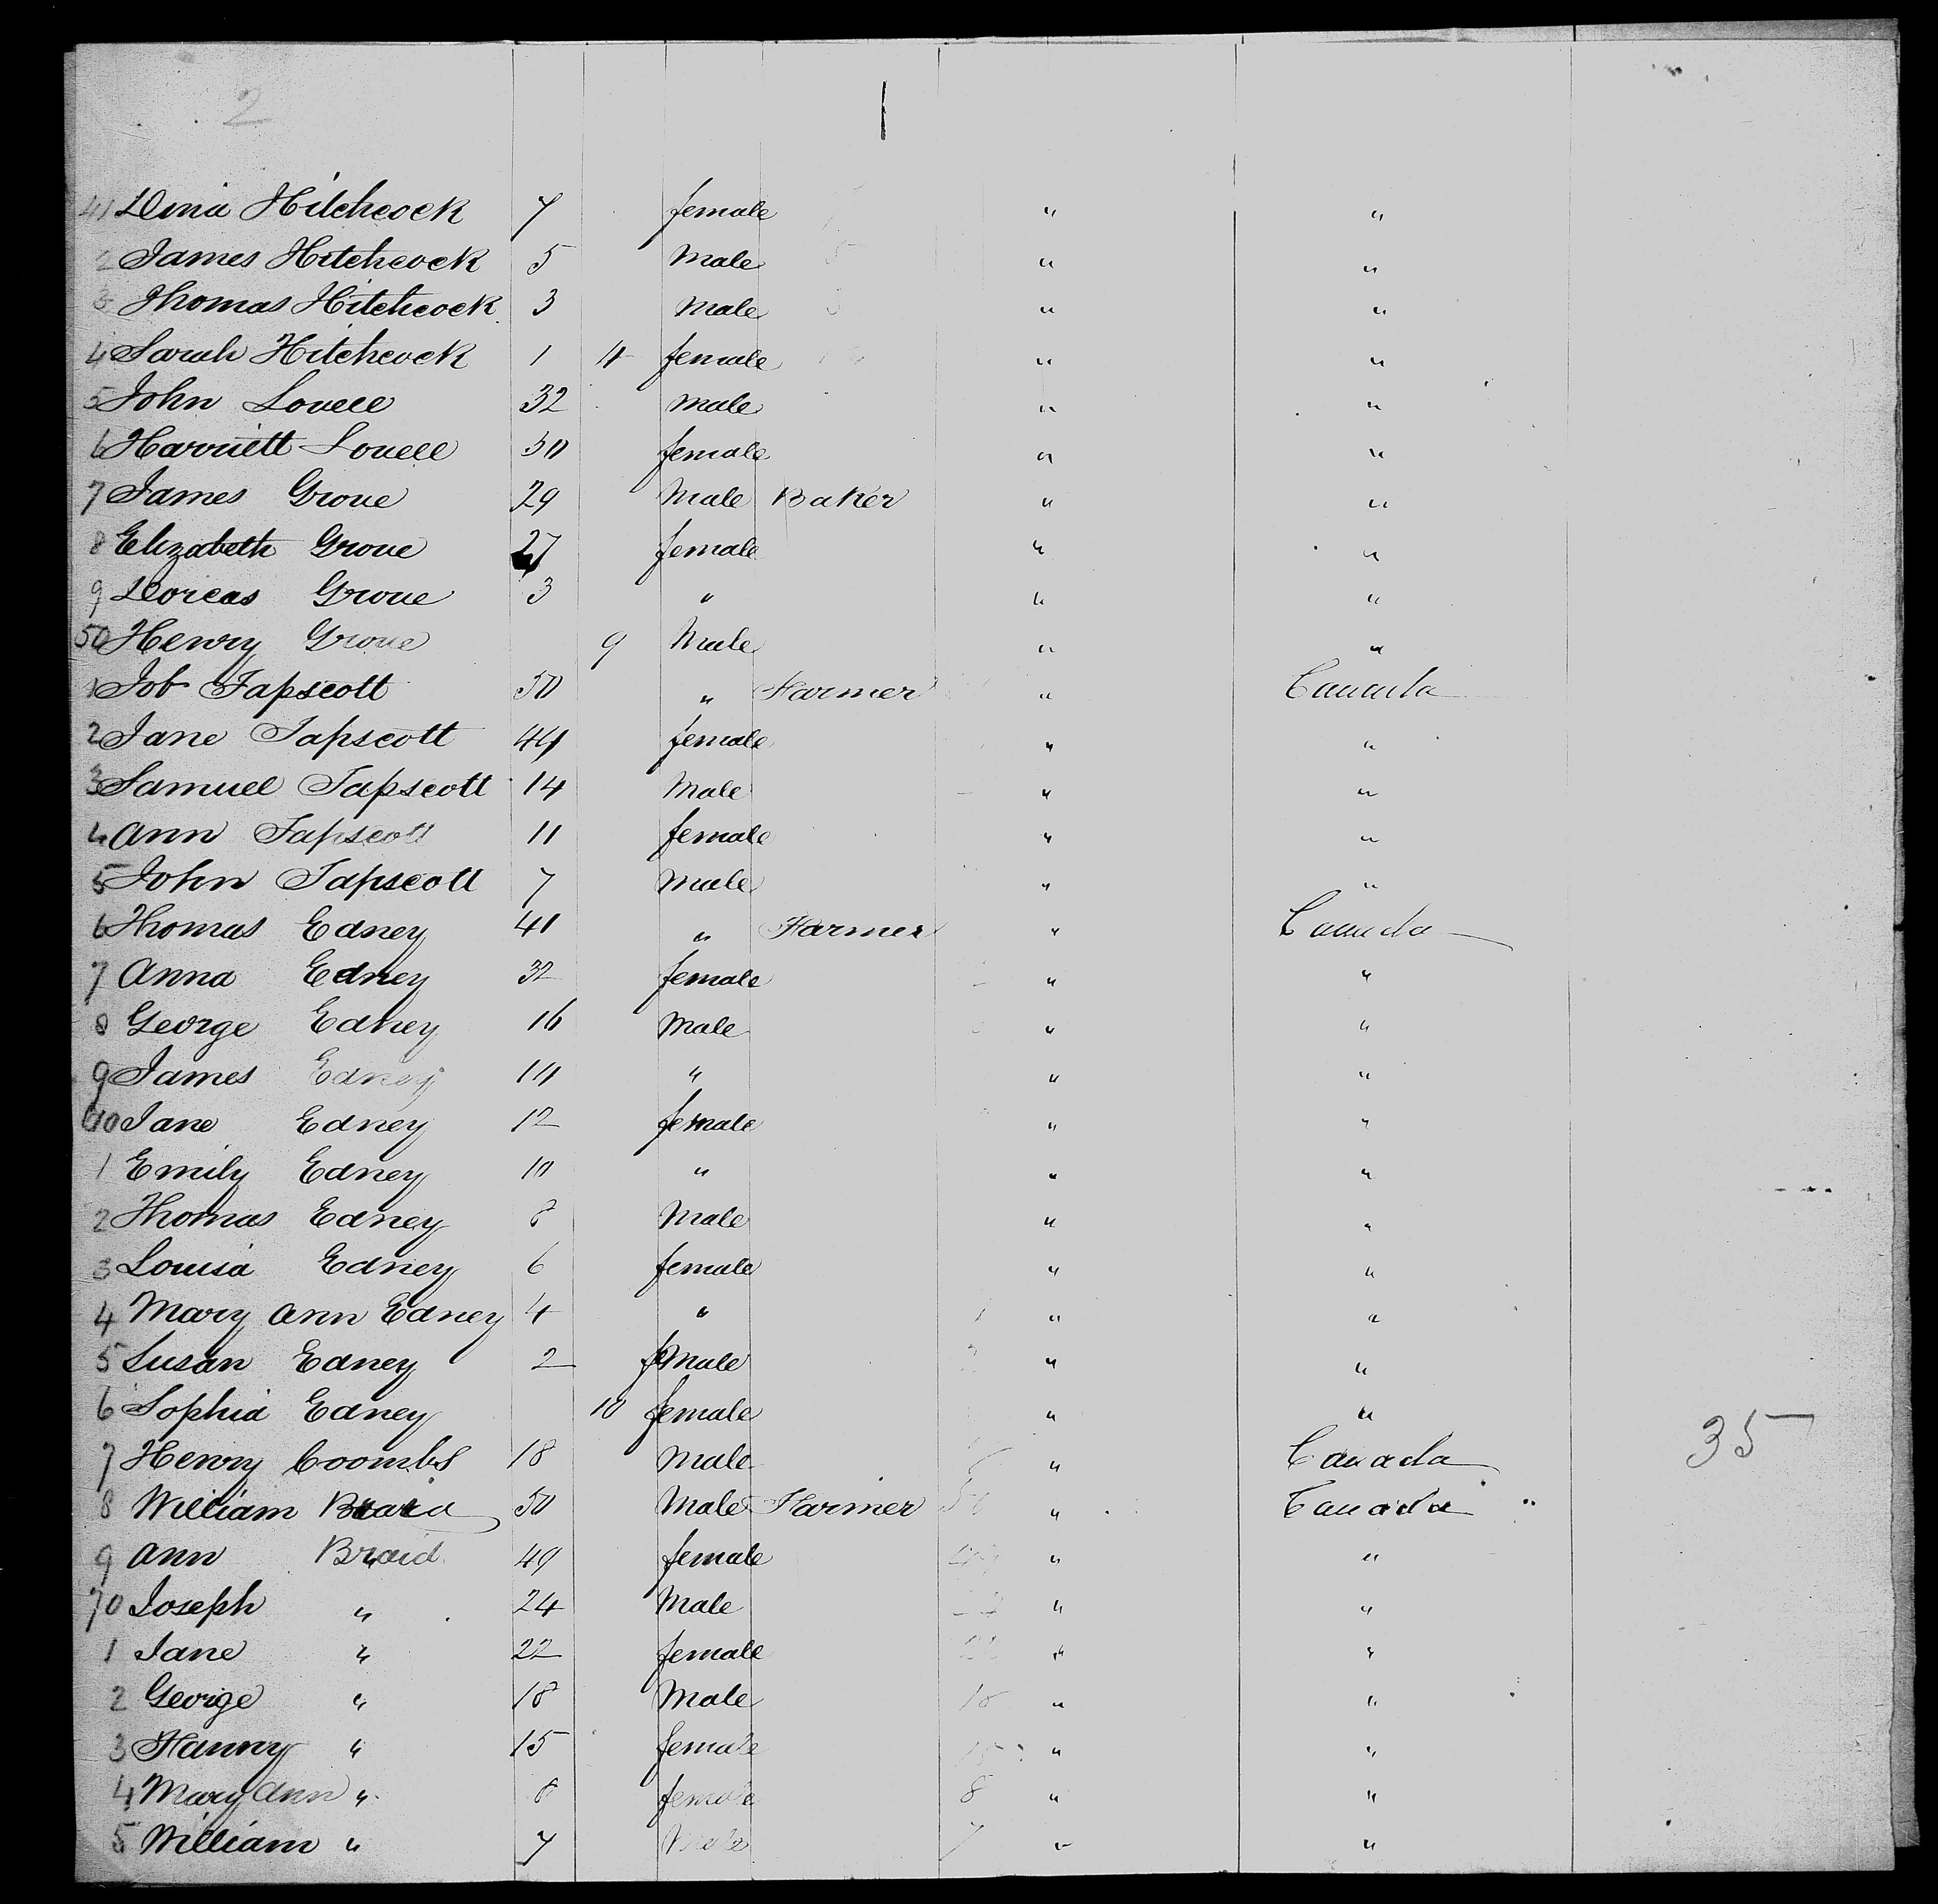 2
41 Dina Hitchcock 7 female " "
2 James Hitchcock 5 Male " "
3 Thomas Hitchcock 3 Male " "
4 Sarah Hitchcock 1 4 female " "
5 John Lovell 32 Male " "
6 Harriett Lovell 30 female " "
7 James Grove 29 Male Baker " "
8 Elizabeth Grove 27 female " "
9 Dorcas Grove 3 " " "
50 Henry Grove 9 Male " "
1 Job Tapscott 50 " Farmer " Canada
2 Jane Tapscott 44 female " "
3 Samuel Tapscott 14 Male " "
4 Ann Tapscott 11 female " "
5 John Tapscott 7 Male " "
6 Thomas Edney 41 " Farmer " Canada
7 Anna Edney 32 female " "
8 George Edney 16 Male " "
9 James Edney 14 " " "
60 Jane Edney 12 female " "
1 Emily Edney 10 " " "
2 Thomas Edney 8 Male " "
3 Louisa Edney 6 female " "
4 Mary Ann Edney 4 " " "
5 Susan Edney 2 female " "
6 Sophia Edney 10 female " "
7 Henry Coombs 18 Male " Canada 35
8 William Braid 50 Male Farmer " Canada
9 Ann Braid 49 female " "
70 Joseph " 24 Male " "
1 Jane " 22 female " "
2 George " 18 Male 18 " "
3 Fanny " 15 female 15 " "
4 Mary Ann " 8 female 8 " "
5 William " 7 Male 7 " "